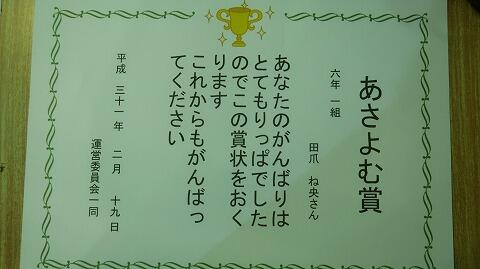 あさよむ賞
六年 一組
田爪 ね央さん
あなたのがんばりは
とてもりっぱでした
のでこの賞状をおく
ります
これからもがんばっ
てください
平成 三十一年 二月 十九日
運営委員会一同